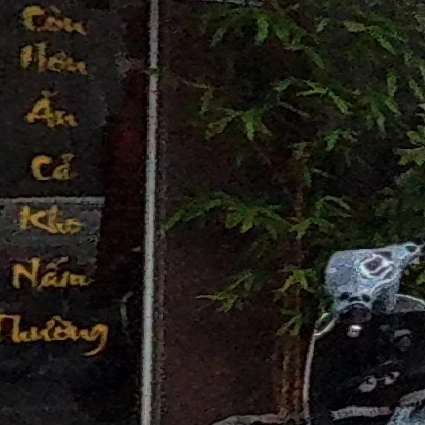 Còn
Hơn
Ăn
Cá
Kho
Nấm
Thường